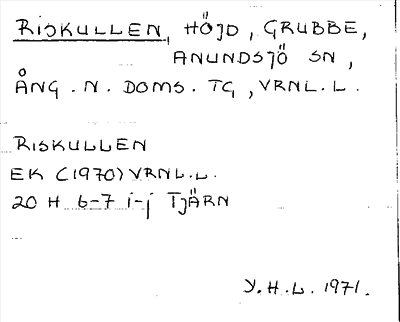 RISKULLEN, HÖJD, GRUBBE,
ANUNDSJÖ SN,
ÅNG. N. DOMS. TG, VRNL.L.
RISKULLEN
EK (1970) VRNL.L.
20 H 6-7 i-j TJÄRN
Y.H.L. 1971.